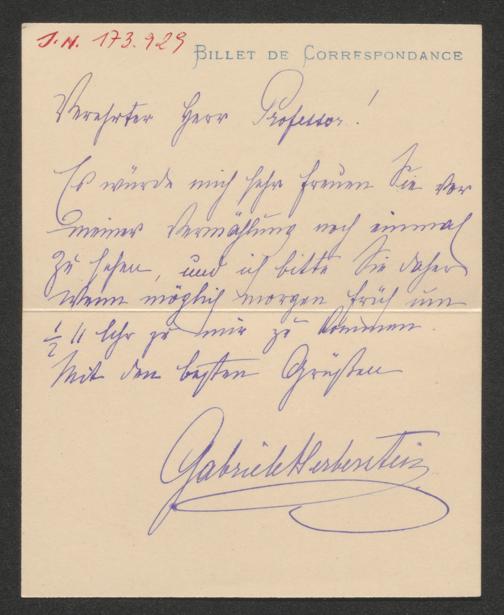 I.N. 173.929
BILLET DE CORRESPONDANCE
Verehrter Herr Professor!
Es würde mich sehr freuen Sie vor
meiner Vermählung noch einmal
zu sehen, und ich bitte Sie daher
wenn möglich morgen früh um
½ 11 Uhr zu mir zu kommen.
Mit den besten Grüßen
Gabriele Herberstein